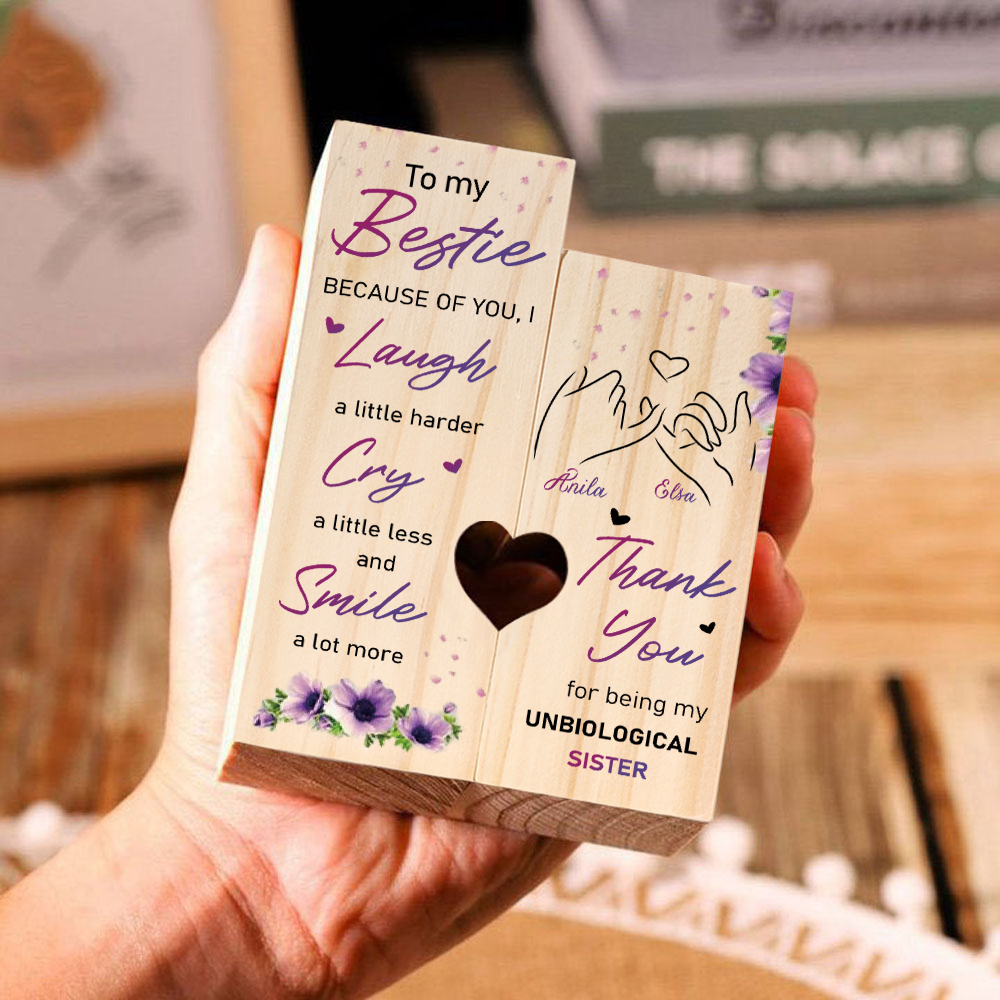 To my
Bestie
BECAUSE OF YOU, I
Laugh
a little harder
Cry
a little less
and
Smile
a lot more
Anila Elsa
Thank
You
for being my
UNBIOLOGICAL
SISTER
THE SOLACE